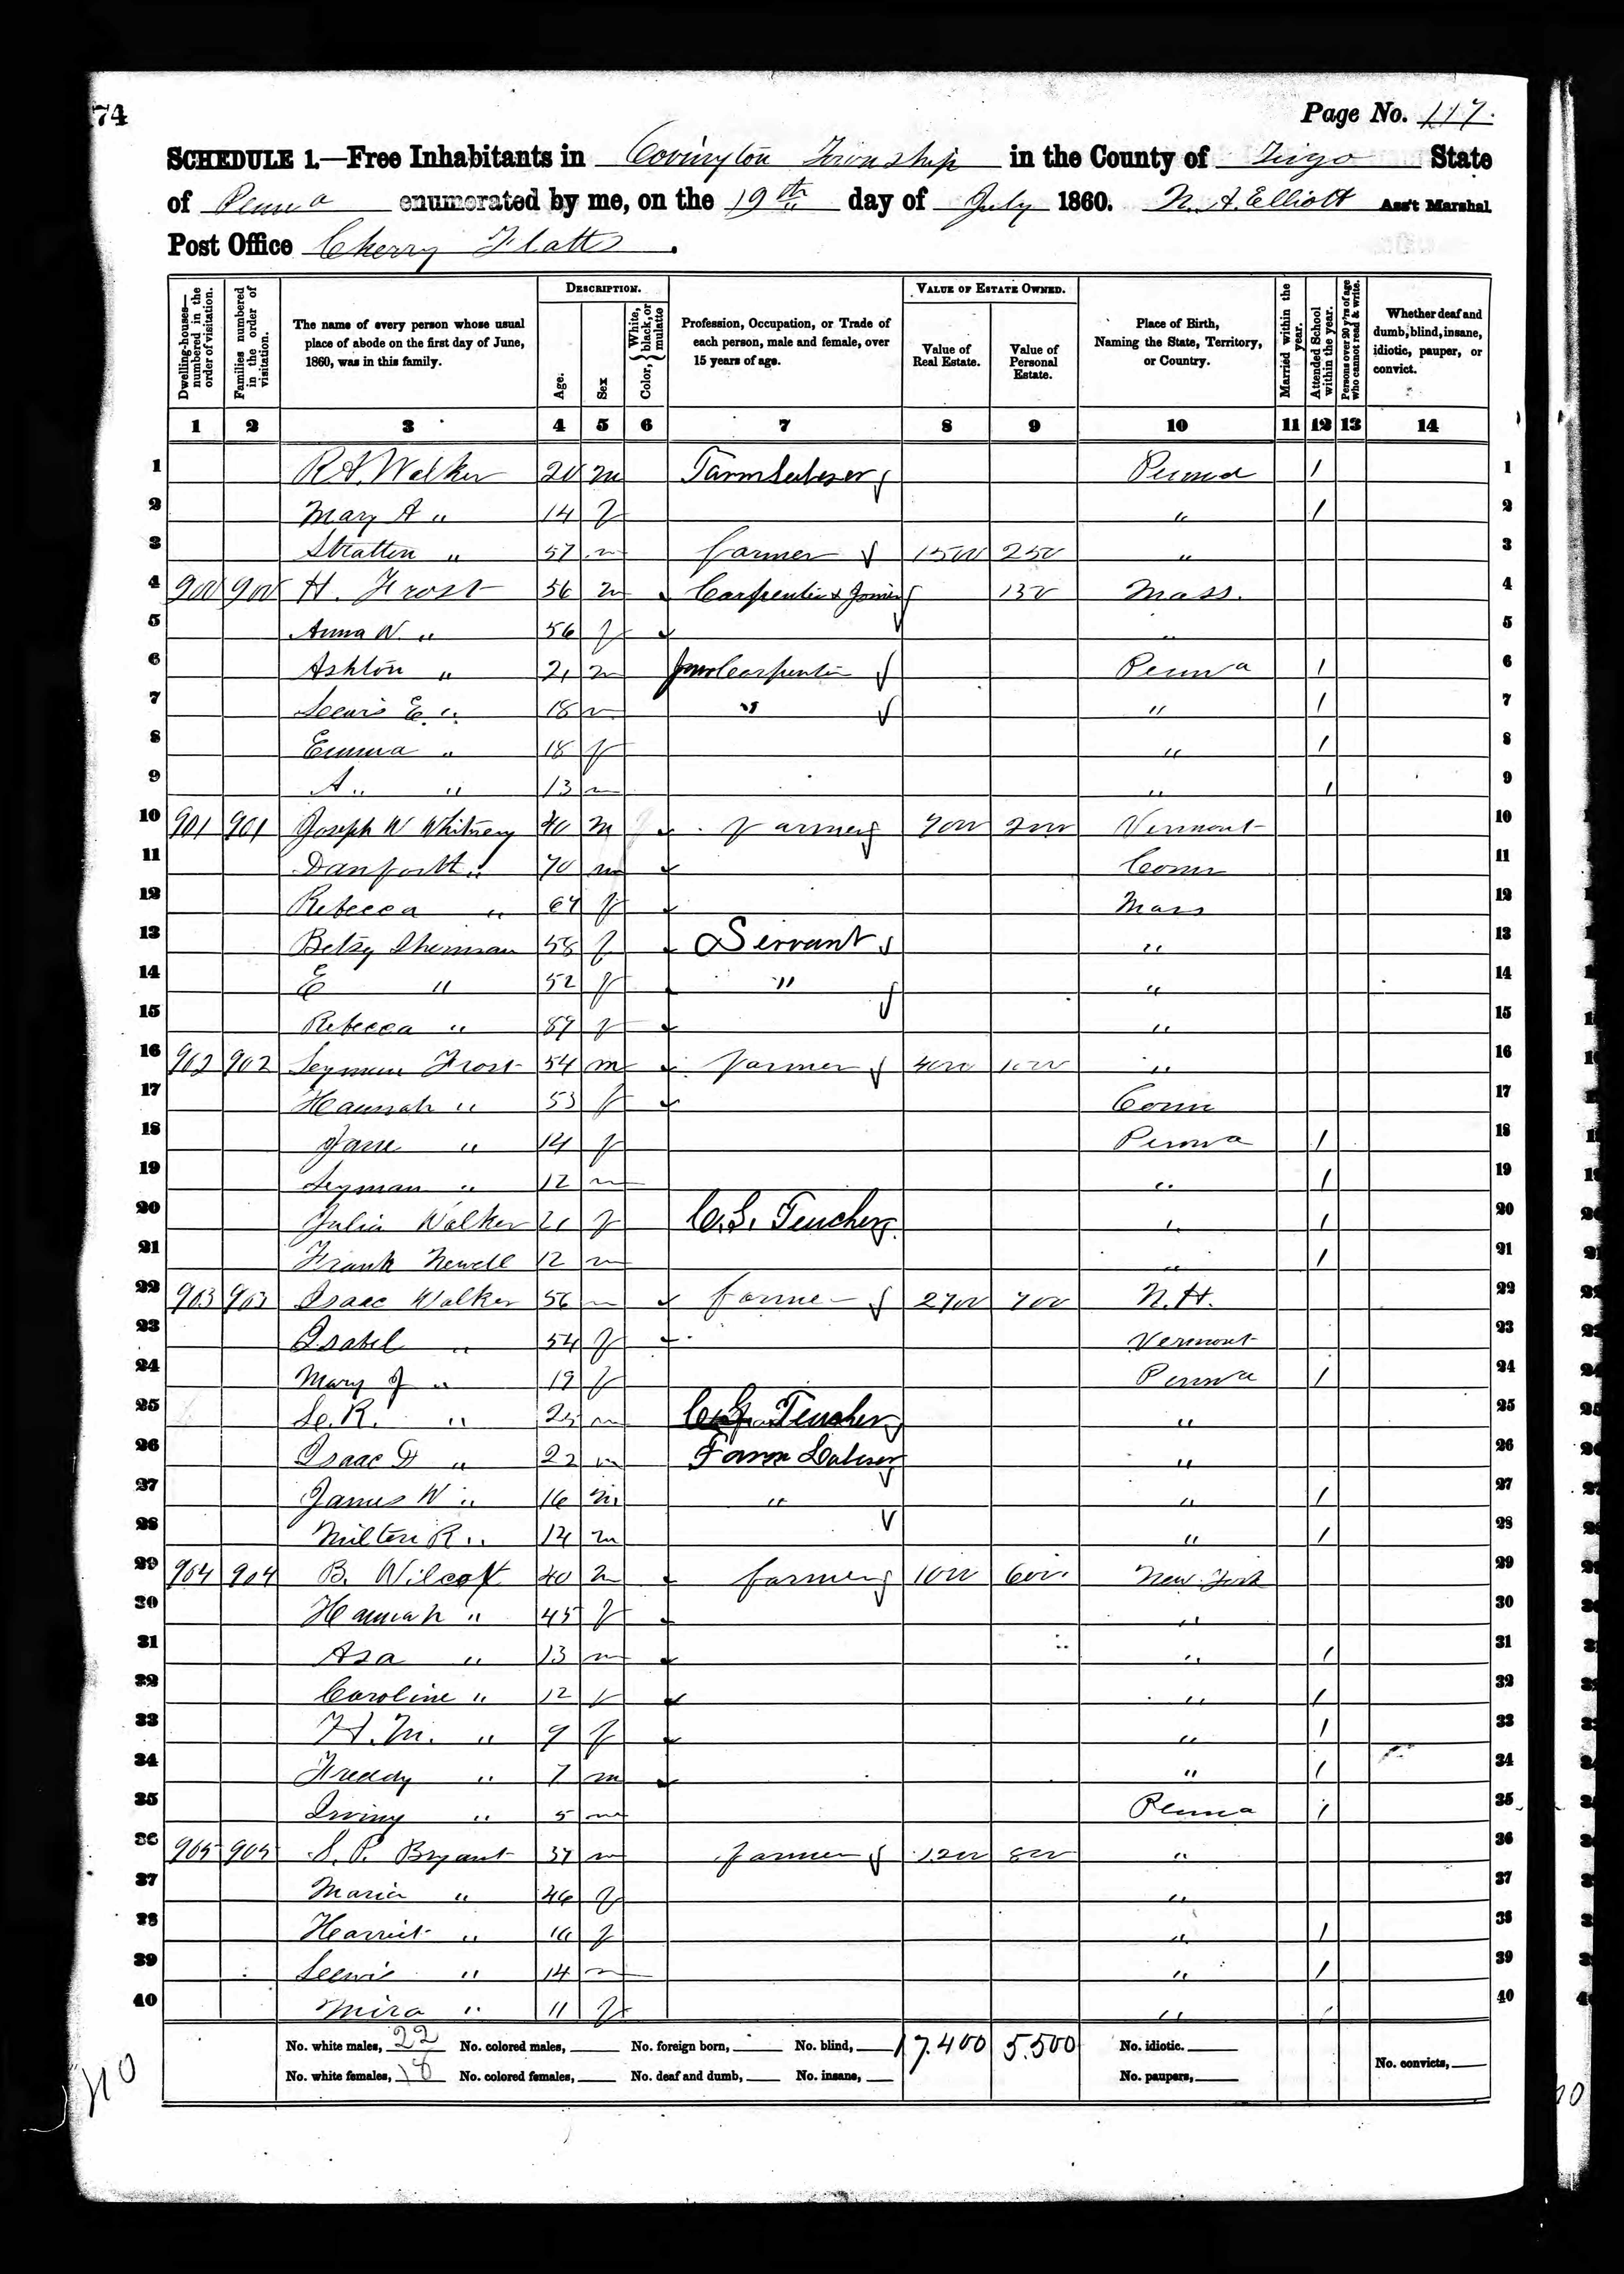 74
Page No. 117.
SCHEDULE 1.—Free Inhabitants in Covington Township in the County of Tioga State
of Penna enumerated by me, on the 19th day of July 1860. N. A. Elliott Ass't Marshal.
Post Office Cherry Flatts.
DESCRIPTION. VALUE OF ESTATE OWNED.
Dwelling-houses—numbered in the order of visitation. Families numbered in the order of visitation. The name of every person whose usual place of abode on the first day of June, 1860, was in this family. Age. Sex Color, White, black, or mulatto Profession, Occupation, or Trade of each person, male and female, over 15 years of age. Value of Real Estate. Value of Personal Estate. Place of Birth, Naming the State, Territory, or Country. Married within the year. Attended School within the year. Persons over 20 y'rs of age who cannot read & write. Whether deaf and dumb, blind, insane, idiotic, pauper, or convict.
1 2 3 4 5 6 7 8 9 10 11 12 13 14
1 Walker 20 m Farm Laborer Penna / 1
2 Mary A " 14 f " / 2
3 Stratten " 57 m farmer 1500 250 " 3
4 900 900 H. Frost 56 m Carpenter & Joiner 150 Mass. 4
5 Anna W. " 56 f " 5
6 Ashton " 21 m Carpenter Penna / 6
7 Lewis E. " 18 m " " / 7
8 Emma " 18 f " / 8
9 A " " 13 m " / 9
10 901 901 Joseph W Whitney 40 m farmer 7000 2000 Vermont 10
11 Danforth " 70 m Conn 11
12 Rebecca " 67 f Mass 12
13 Betsy Sherman 58 f Servant " 13
14 E " 52 f " " 14
15 Rebecca " 89 f " 15
16 902 902 Seymour Frost 54 m farmer 4000 1000 " 16
17 Hannah " 53 f Conn 17
18 Jane " 14 f Penna / 18
19 Lyman " 12 m " / 19
20 Julia Walker 21 f C.S. Teacher " / 20
21 Frank Newell 12 m " / 21
22 903 903 Isaac Walker 56 m farmer 2700 700 N.H. 22
23 Isabel " 54 f Vermont 23
24 Mary J " 19 f Penna / 24
25 L. R. " 25 m C.S. Teacher " 25
26 Isaac " 22 m Farm Laborer " 26
27 James W " 16 m " " / 27
28 Milton R " 14 m " / 28
29 904 904 B. Wilcox 40 m farmer 1000 600 New York 29
30 Hannah " 45 f " 30
31 Asa " 13 m " / 31
32 Caroline " 12 f " / 32
33 H. M. " 9 f " / 33
34 Freddy " 7 m " / 34
35 Irving " 5 m Penna / 35
36 905 905 S. P. Bryant 37 m farmer 1200 800 " 36
37 Maria " 46 f " 37
38 Harriet " 16 f " / 38
39 Lewis " 14 m " / 39
40 Mira " 11 f " / 40
No. white males, 22 No. colored males, No. foreign born, No. blind, 17.400 5.500 No. idiotic.
No. white females, 18 No. colored females, No. deaf and dumb, No. insane, No. paupers, No. convicts,